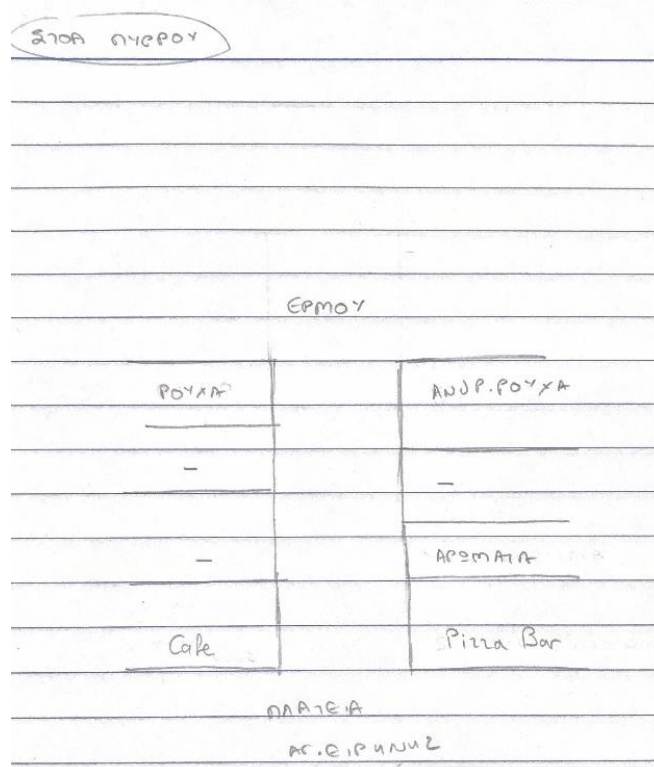 ΣΤΟΑ ΠΥΡΡΟΥ
ΕΡΜΟΥ
ΡΟΥΧΑ ΑΝΔΡ.ΡΟΥΧΑ
- -
- ΑΡΩΜΑΤΑ
Cafe Pizza Bar
ΠΛΑΤΕΙΑ
ΑΓ.ΕΙΡΗΝΗΣ